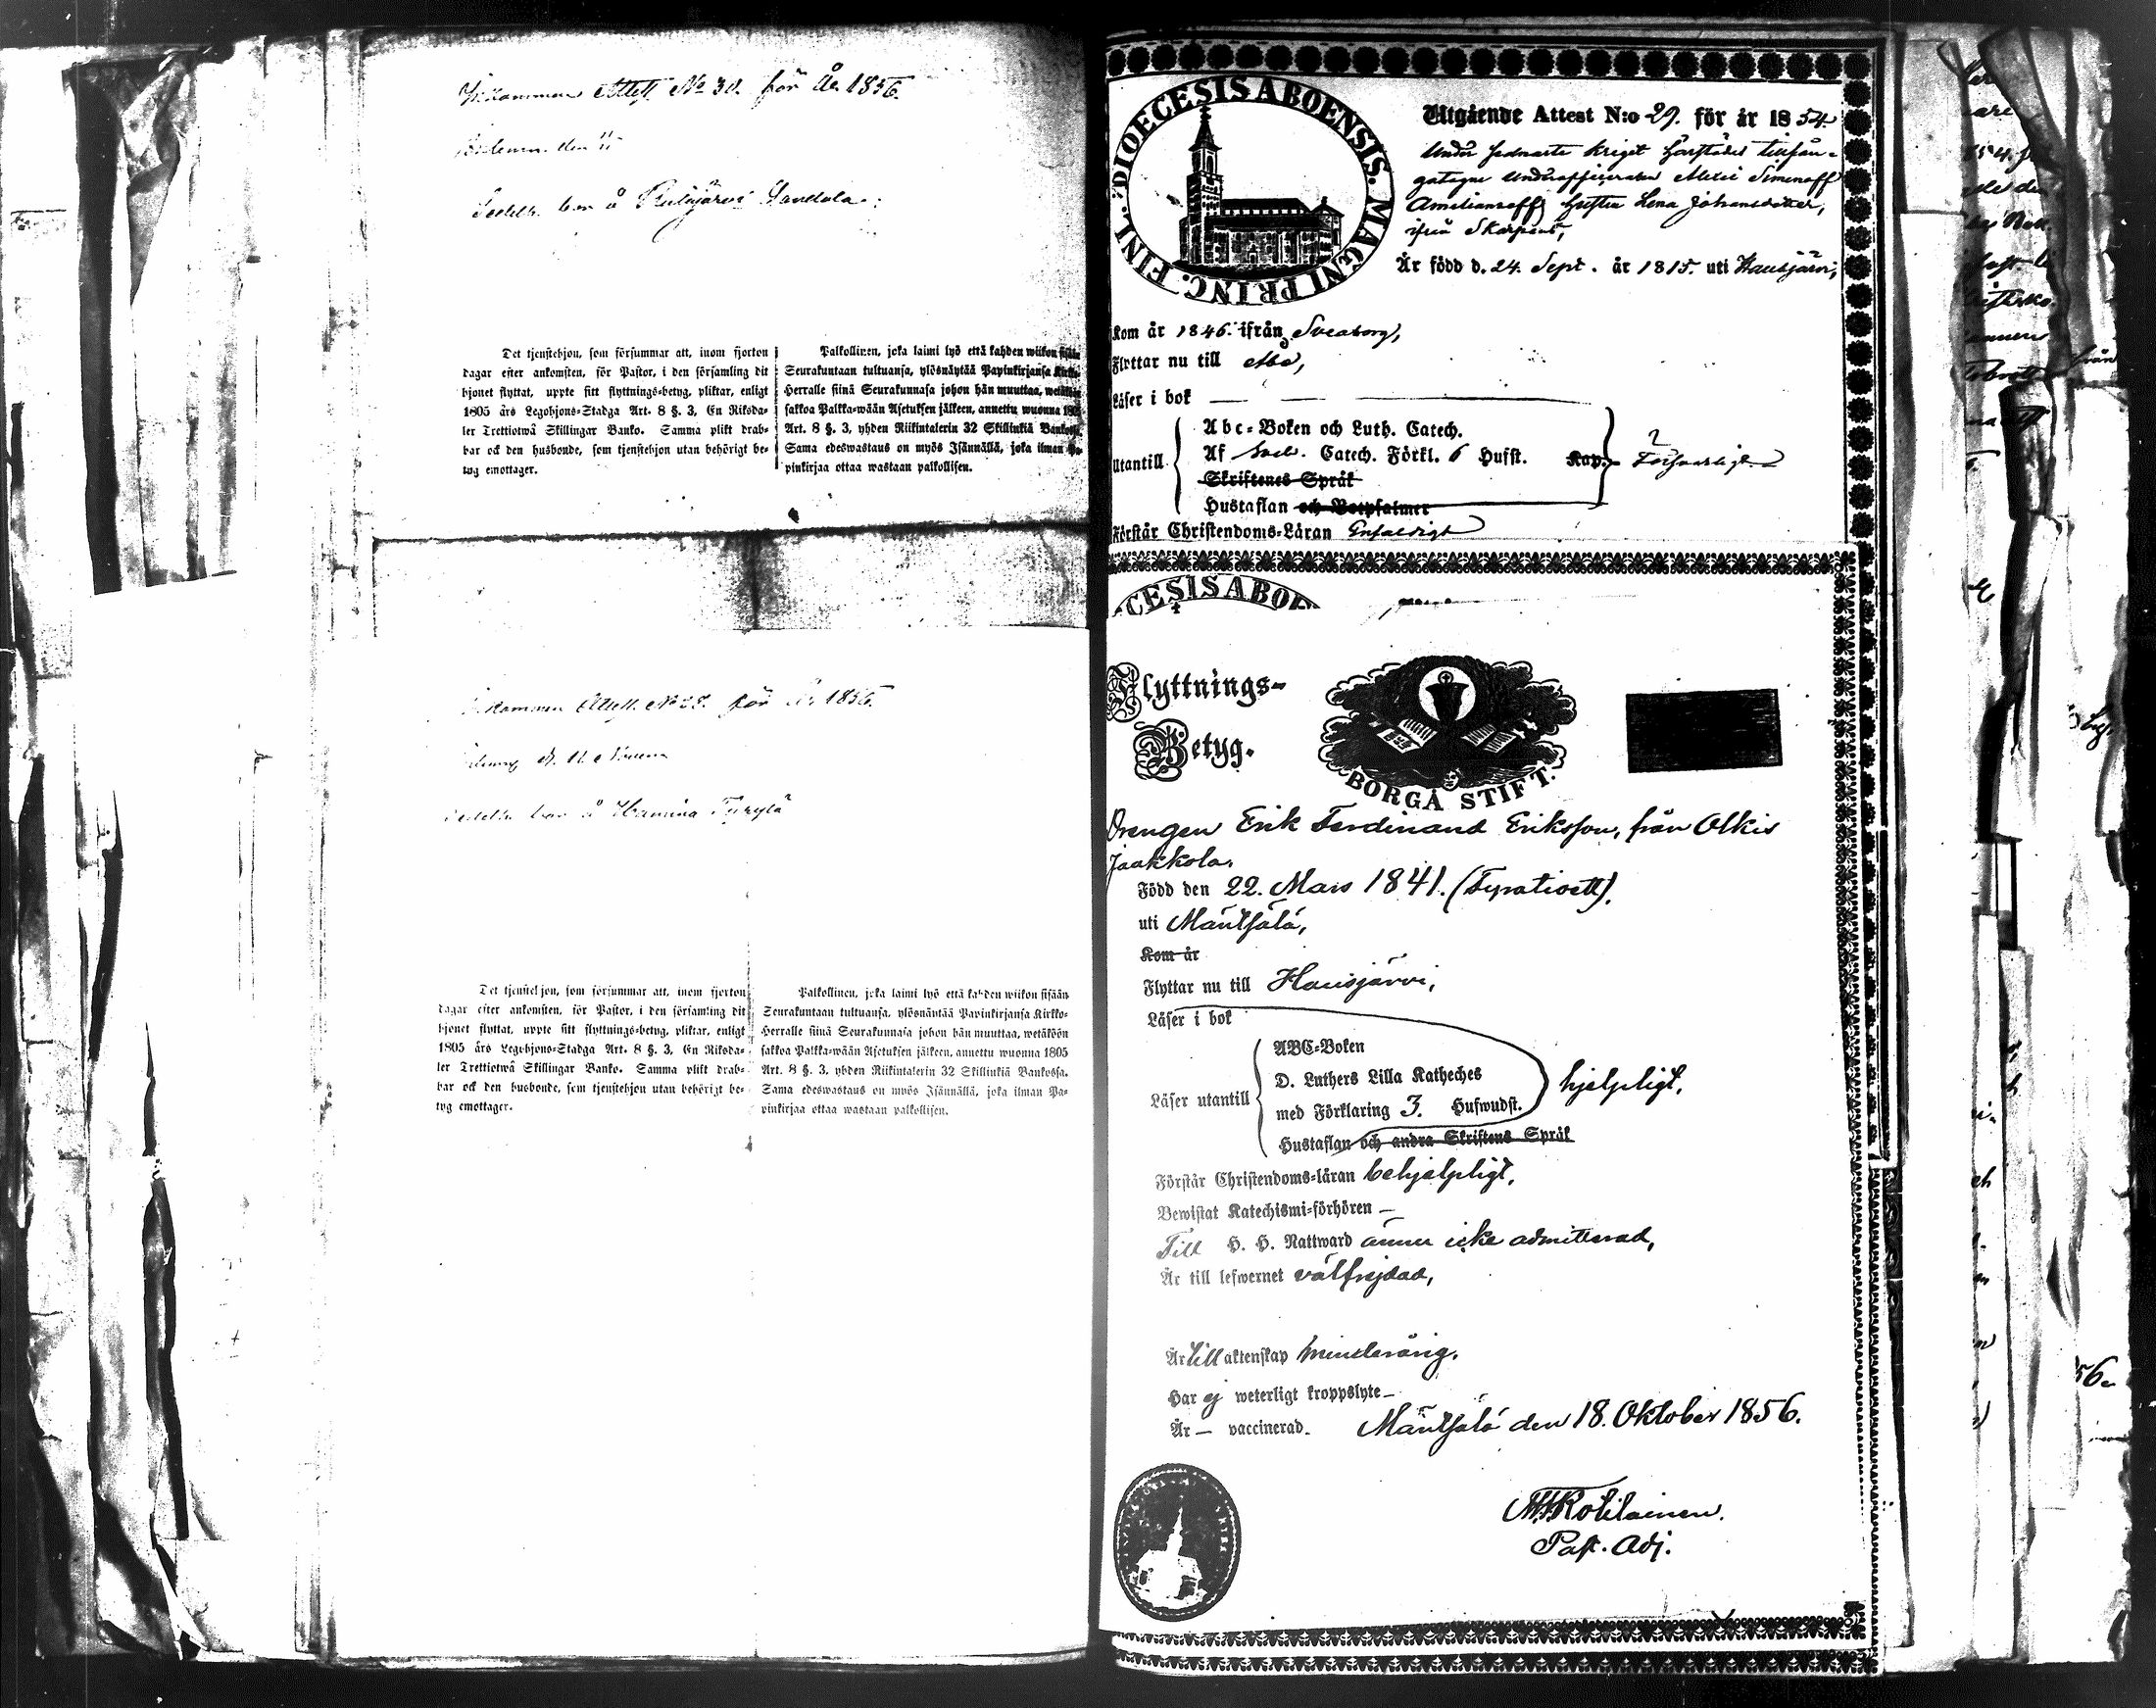 Inkommen Attest No 30. för År 1856.
Det tjenstehjon, som försummar att, inom fjorton
dagar efter ankomsten, för Pastor, i den församling dit
hjonet flyttat, uppte sitt flyttnings-betyg, pliktar, enligt
1805 års Legohjons-Stadga Art. 8 §. 3, En Riksda-
ler Trettiotwå Skillingar Banko. Samma plikt drab-
bar ock den husbonde, som tjenstehjon utan behörigt be-
tyg emottager.
Palkollinen, joka laimi lyö että kahden wiikon sisään
Seurakuntaan tultuansa, ylösnäytää Papinkirjansa Kirkko-
Herralle siinä Seurakunnasa johon hän muuttaa, wetäköön
sakkoa Palkka-wään Asetuksen jälkeen, annettu wuonna 1805
Art. 8 §. 3, yhden Riikintalerin 32 Skillinkiä Bankossa.
Sama edeswastaus on myös Isännällä, joka ilman Pa-
pinkirjaa ottaa wastaan palkollisen.
Inkommen Attest. No 28. för År 1856.
Det tjenstehjon, som försummar att, inom fjorton
dagar efter ankomsten, för Pastor, i den församling dit
hjonet flyttat, uppte sitt flyttnings-betyg, pliktar, enligt
1805 års Legohjons-Stadga Art. 8 §. 3, En Riksda-
ler Trettiotwå Skillingar Banko. Samma plikt drab-
bar ock den husbonde, som tjenstehjon utan behörigt be-
tyg emottager.
Palkollinen, joka laimi lyö että kahden wiikon sisään
Seurakuntaan tultuansa, ylösnäytää Papinkirjansa Kirkko-
Herralle siinä Seurakunnasa johon hän muuttaa, wetäköön
sakkoa Palkka-wään Asetuksen jälkeen, annettu wuonna 1805
Art. 8 §. 3, yhden Riikintalerin 32 Skillinkiä Bankossa.
Sama edeswastaus on myös Isännällä, joka ilman Pa-
pinkirjaa ottaa wastaan palkollisen.
DIOECESIS ABOENSIS. MAGNI PRINC. FINL.
Utgående Attest N:o 29. för år 1854.
Under sednaste kriget härstädes tillfån-
gatagne Underofficeraren Alexei Simenoff
Amilianoffs hustru Lena Johansdotter,
ifrån Skarpans,
Är född d. 24. Sept. år 1815. uti Hausjärvi,
Kom år 1846. ifrån Sveaborg,
Flyttar nu till Åbo,
Läser i bok
utantill
Abc-Boken och Luth. Catech.
Af Sveb. Catech. Förkl. 6 Hufst. Kap.
Skriftenes Språk
Hustaflan och Botpsalmer
Försvarligt
Förstår Christendoms-Läran Enfaldigt
CESIS ABOE
Flyttnings-
Betyg.
BORGÅ STIFT.
Drengen Erik Ferdinand Eriksson, från Olkis
Jaakkola.
Född den 22. Mars 1841. (Fyratioett).
uti Mäntsälä,
Kom år
Flyttar nu till Hausjärvi,
Läser i bok
Läser utantill
ABC-Boken
D. Luthers Lilla Katheches
med Förklaring 3. Hufwudst.
Hustaflan och andra Skriftens Språk
hjelpligt,
Förstår Christendoms-läran behjelpligt,
Bewistat Katechismi-förhören —
Till H. H. Nattward ännu icke admitterad,
Är till lefwernet välfrejdad,
Är till äktenskap minderårig.
Har ej weterligt kroppslyte —
Är — vaccinerad.
Mäntsälä den 18. Oktober 1856.
Kotilainen.
Past. Adj.